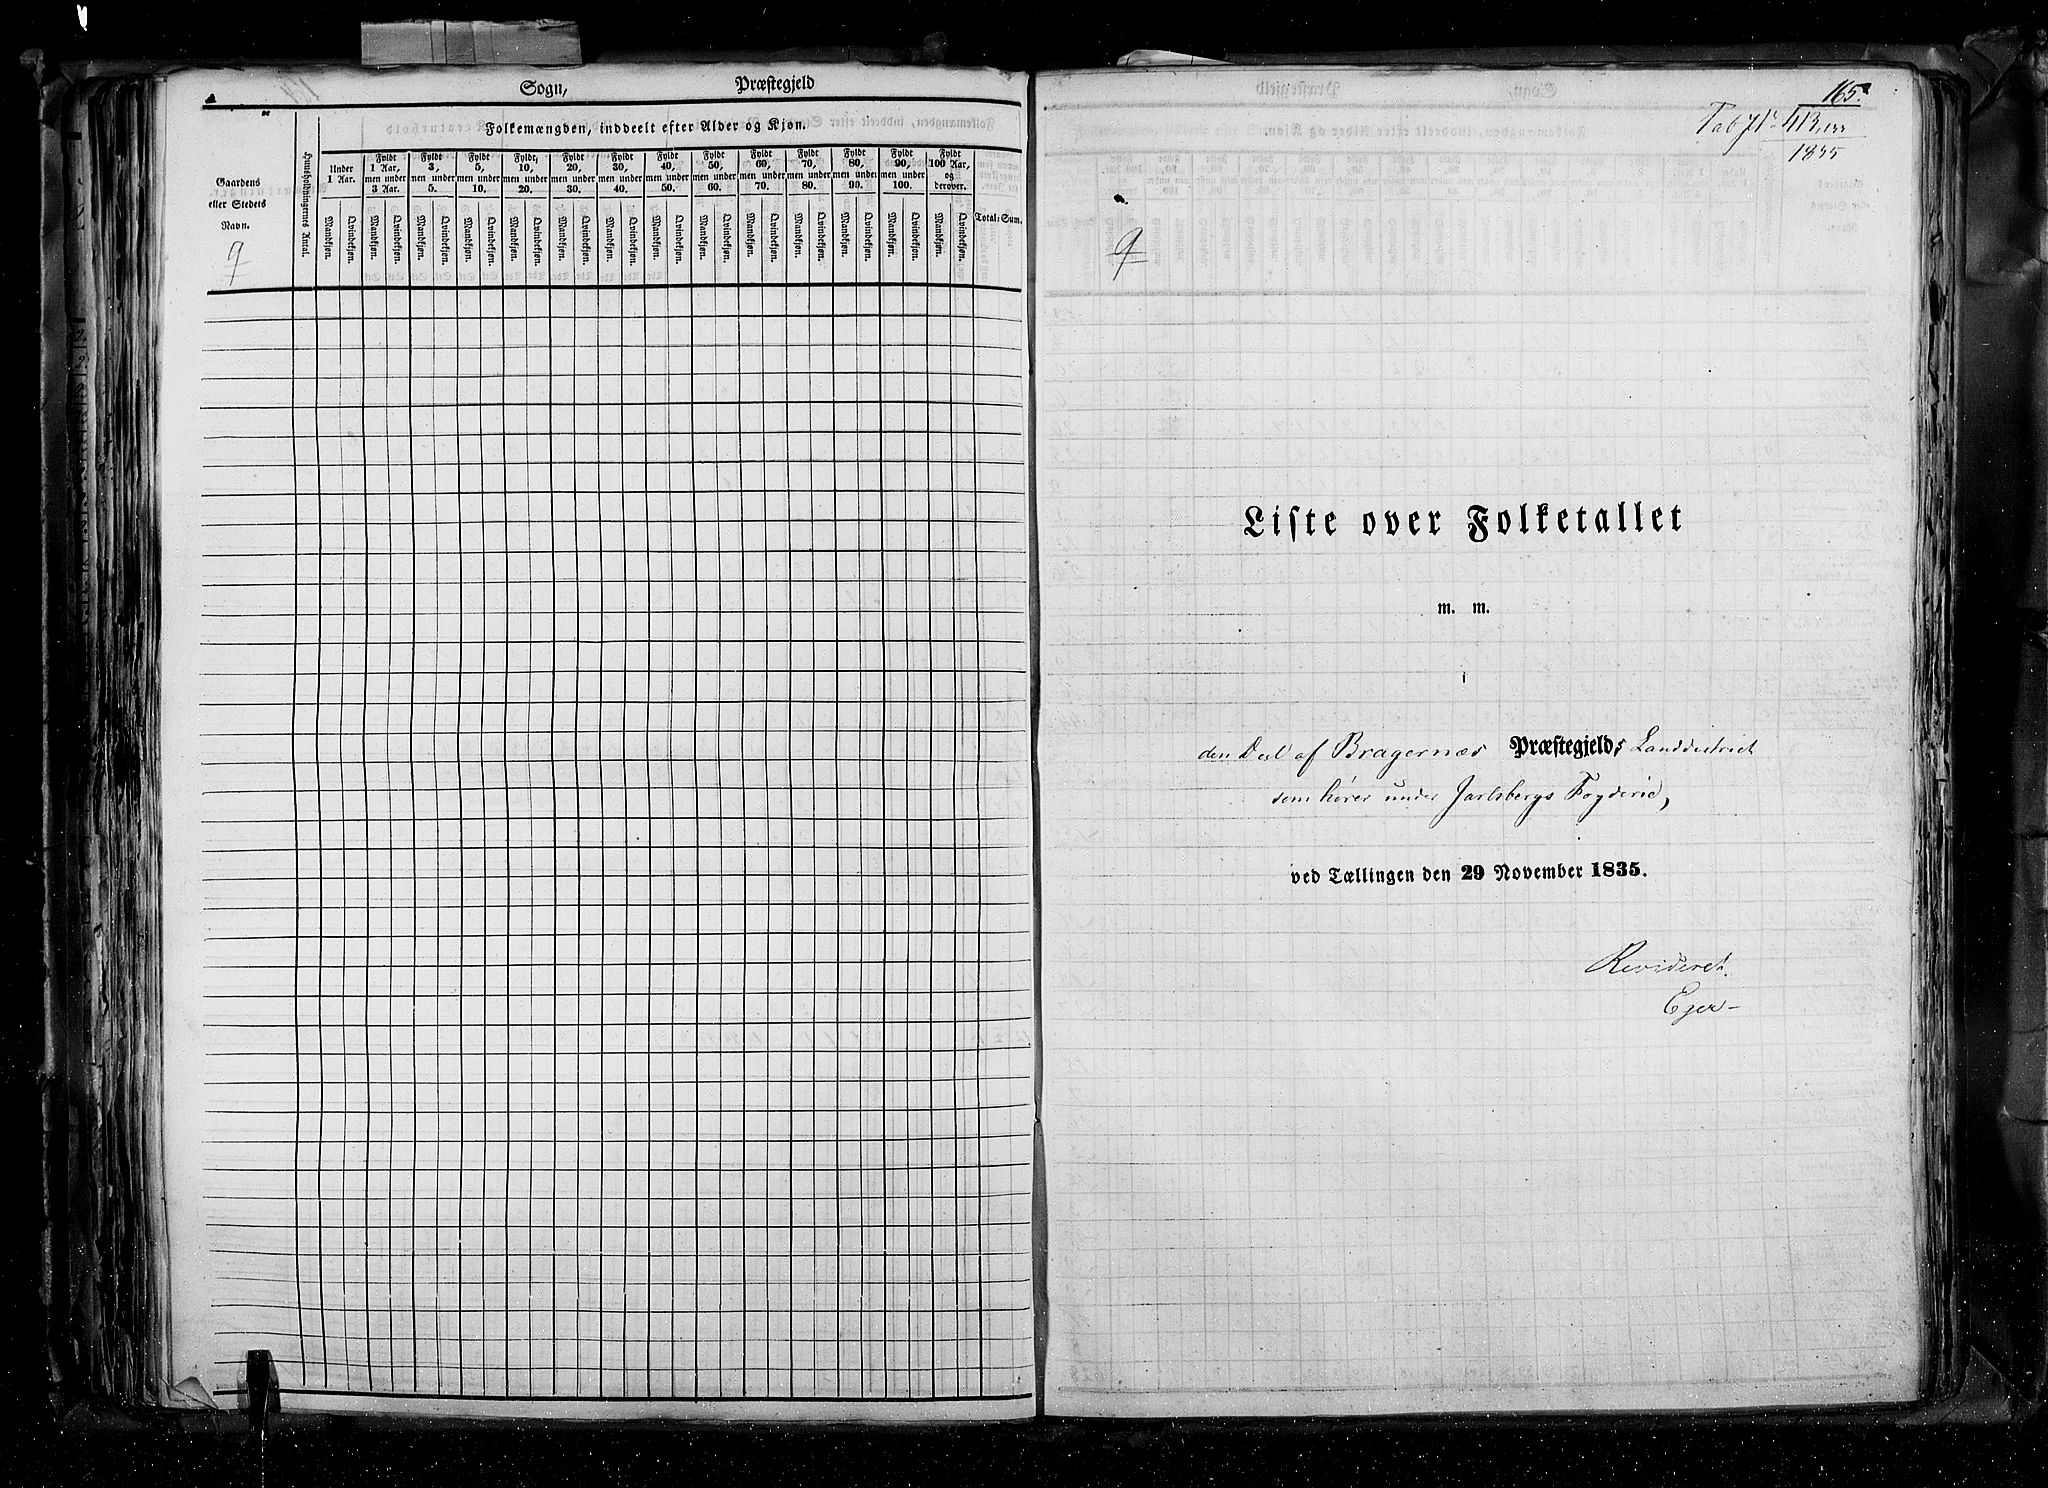 Sogn, Præstegjeld
Folkemængden, inddeelt efter Alder og Kjøn.
Gaardens eller Stedets Navn.
Huusholdningernes Antal.
Under 1 Aar.
Fyldt 1 Aar, men under 3 Aar.
Fyldt 3, men under 5.
Fyldt 5, men under 10.
Fyldt 10, men under 20.
Fyldt 20, men under 30.
Fyldt 30, men under 40.
Fyldt 40, men under 50.
Fyldt 50, men under 60.
Fyldt 60, men under 70.
Fyldt 70, men under 80.
Fyldt 80, men under 90.
Fyldt 90, men under 100.
Fyldt 100 Aar, og derover.
Mandkjøn. Qvindekjøn. Mandkjøn. Qvindekjøn. Mandkjøn. Qvindekjøn. Mandkjøn. Qvindekjøn. Mandkjøn. Qvindekjøn. Mandkjøn. Qvindekjøn. Mandkjøn. Qvindekjøn. Mandkjøn. Qvindekjøn. Mandkjøn. Qvindekjøn. Mandkjøn. Qvindekjøn. Mandkjøn. Qvindekjøn. Mandkjøn. Qvindekjøn. Mandkjøn. Qvindekjøn. Mandkjøn. Qvindekjøn.
Total-Sum.
9
165.
1835
9
Liste over Folketallet
m. m.
i
den Deel af Bragernæs Præstegjelds Landdistrict
som hører under Jarlsbergs Fogderie,
ved Tællingen den 29 November 1835.
Revideret.
Eger